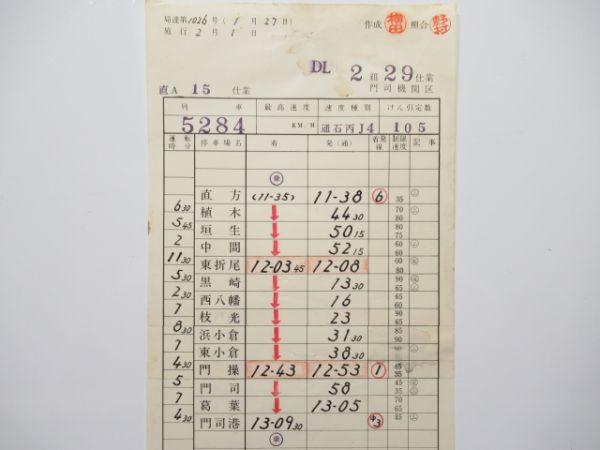 局達第1026号(1月27日)
施行 2月1日
作成 照合 野村
DL 2 組 29 仕業
直A 15 仕業 門司機関区
列車 最高速度 速度種別 けん引定数
5284 KM/H 通石丙J4 105
運転時分 停車場名 着 発(通) 着発線 制限速度 記事
乗
直方 (11-35) 11-38 6 35
6 30
植木 ↓ 44 30 70 80
5 45
垣生 ↓ 50 15 75 80
2
中間 ↓ 52 15 60 60
11 30
東折尾 12-03 45 12-08 60 80
5 30
黒崎 ↓ 13 30
2 30
西八幡 ↓ 16 65
7
枝光 ↓ 23 65 60
8 30
浜小倉 ↓ 31 30 85 90
7
東小倉 ↓ 38 30 60
4 30
門操 12-43 12-53 1 45 35
5
門司 ↓ 58 45 35
7
葛葉 ↓ 13-05
4 30
門司港 13-09 30 中3
乗